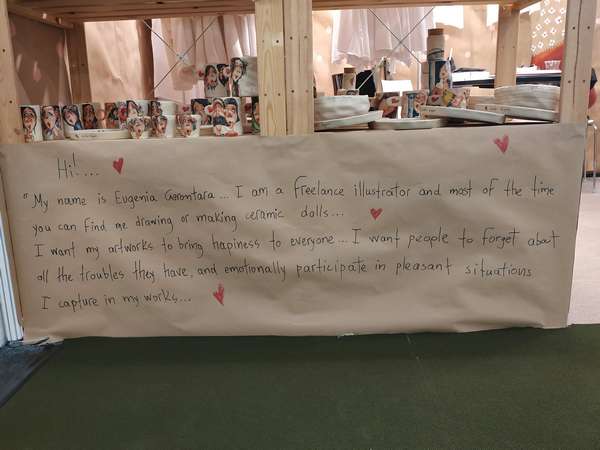 Hi!....
"My name is Eugenia Gerontara... I am a freelance illustrator and most of the time
you can find me drawing or making ceramic dolls...
I want my artworks to bring hapiness to everyone... I want people to forget about
all the troubles they have, and emotionally participate in pleasant situations
I capture in my works...